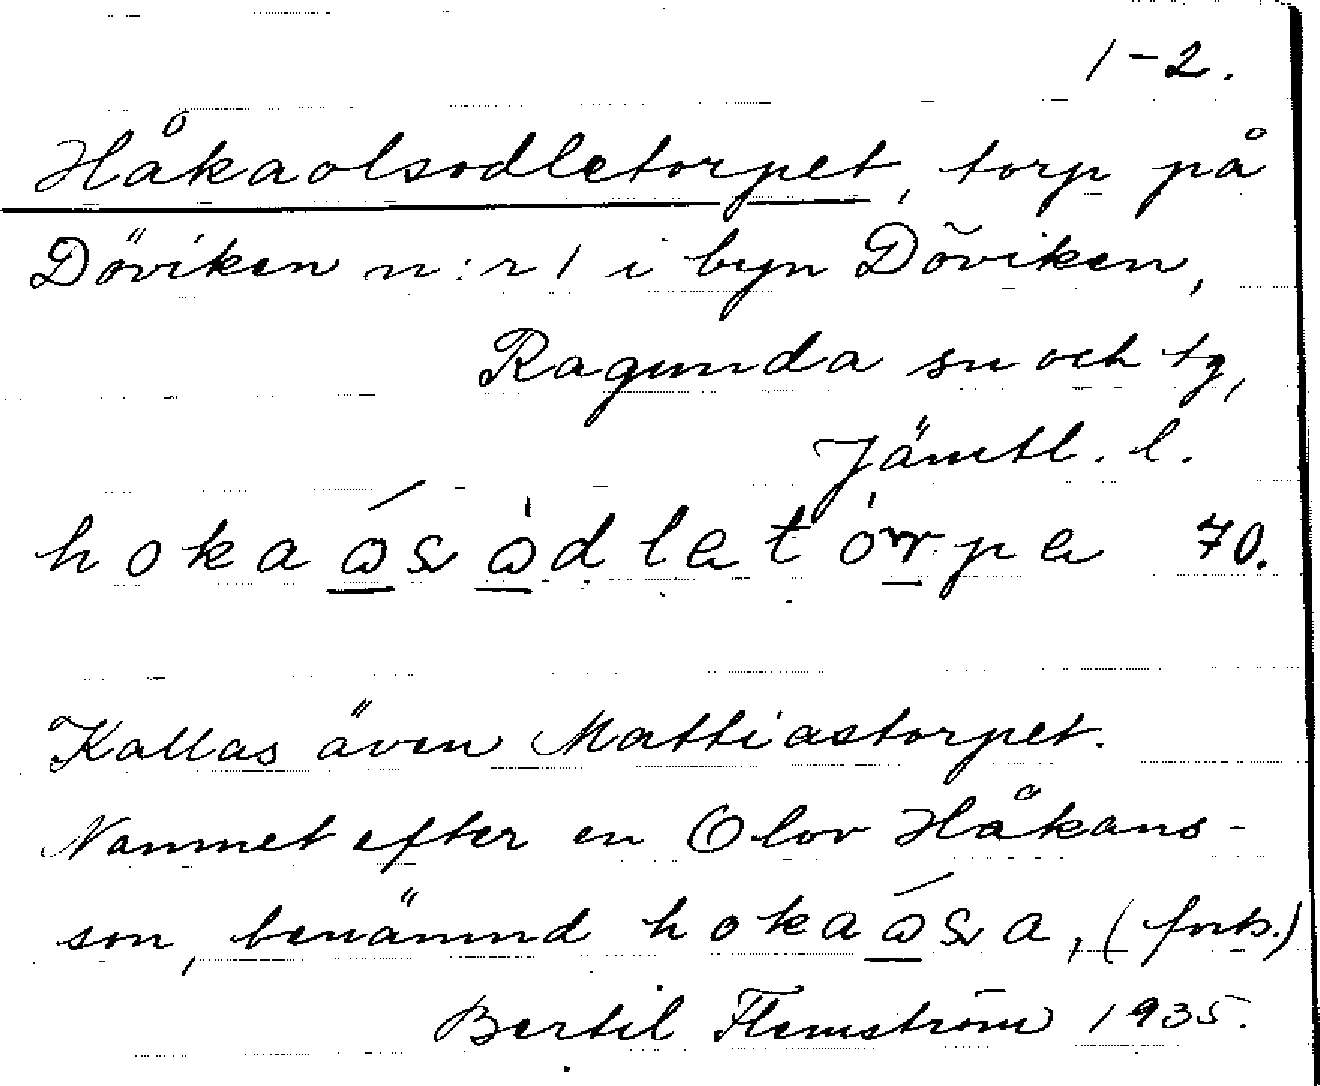 1-2.
Håkaolsodletorpet, torp på
Döviken n:r 1 i byn Döviken,
Ragunda sn och tg,
Jämtl. l.
70.
Kallas även Mattiastorpet.
Namnet efter en Olov Håkans-
son, benämnd (forts.)
Bertil Flemström 1935.